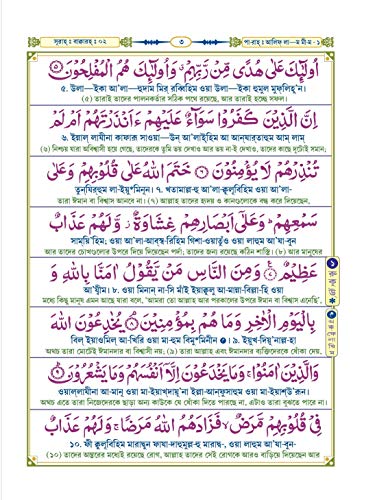 সূরাহ্ : বাক্বারহ্ : ০২
৩
পা-রাহ্ : আলিফ্ লা—ম মী—ম - ১
اُولٰٓئِكَ عَلٰى هُدًى مِّنْ رَّبِّهِمْ وَاُولٰٓئِكَ هُمُ الْمُفْلِحُوْنَ ۝
৫. উলা—ইকা আ'লা— হুদাম মির্ রব্বিহিম ওয়া উলা—ইকা হুমুল মুফ্লিহূ'ন।
(৫) তারাই তাদের পালনকর্তার সঠিক পথে রয়েছে, আর তারাই হচ্ছে সফল।
اِنَّ الَّذِيْنَ كَفَرُوْا سَوَآءٌ عَلَيْهِمْ ءَاَنْذَرْتَهُمْ اَمْ لَمْ
৬. ইন্নাল্ লাযীনা কাফারূ সাওয়া—উন্ আ'লাইহিম আ আন্যারতাহুম আম্ লাম্
(৬) নিশ্চয় যারা অবিশ্বাসী হয়ে গেছে, তাদেরকে তুমি ভয় দেখাও আর ভয় না-ই দেখাও, তাদের কাছে দুটোই সমান;
تُنْذِرْهُمْ لَا يُؤْمِنُوْنَ ۝ خَتَمَ اللّٰهُ عَلٰى قُلُوْبِهِمْ وَعَلٰى
তুনযিরহুম লা-ইয়ু'মিনূন। ৭. খতামাল্ল-হু আ'লা-ক্বুলূবিহিম ওয়া আ'লা-
তারা ঈমান বা বিশ্বাস আনবে না। (৭) আল্লাহ তাদের হৃদয় ও কানগুলোকে বন্ধ করে দিয়েছেন,
سَمْعِهِمْ وَعَلٰٓى اَبْصَارِهِمْ غِشَاوَةٌ وَّلَهُمْ عَذَابٌ
সাম্য়ি'হিম; ওয়া আ'লা-আবস্ব-রিহিম গিশা-ওয়াতুঁও ওয়া লাহুম আ'যা-বুন
আর তাদের চোখগুলোর উপরে দিয়ে দিয়েছেন পর্দা; তাদের জন্য রয়েছে কঠিন শাস্তি। (৮) আর মানুষের
عَظِيْمٌ ۝ وَمِنَ النَّاسِ مَنْ يَّقُوْلُ اٰمَنَّا بِاللّٰهِ وَ
আ'যীম। ৮. ওয়া মিনান্ না-সি মাঁই ইয়াক্বূলু আ-মান্না-বিল্লা-হি ওয়া
মধ্যে কিছু মানুষ এমন আছে যারা বলে, 'আমরা তো আল্লাহ আর পরকালের উপরে ঈমান বা বিশ্বাস এনেছি',
بِالْيَوْمِ الْاٰخِرِ وَمَا هُمْ بِمُؤْمِنِيْنَ ۝ يُخٰدِعُوْنَ اللّٰهَ
বিল্ ইয়াওমিল্ আ-খিরি ওয়া মা-হুম বিমু'মিনীন। ৯. ইয়ুখ-দিয়ূ'নাল্ল-হা
অথচ তারা মোটেই ঈমানদার বা বিশ্বাসী নয়; (৯) তারা আল্লাহ এবং ঈমানদার ব্যক্তিদেরকে ধোঁকা দেয়,
وَالَّذِيْنَ اٰمَنُوْا ۚ وَمَا يَخْدَعُوْنَ اِلَّآ اَنْفُسَهُمْ وَمَا يَشْعُرُوْنَ ۝
ওয়াল্লাযীনা আ-মানূ ওয়া মা-ইয়াখ্দায়ূ'না ইল্লা-আন্ফুসাহুম ওয়া মা-ইয়াশ্উ'রূন।
অথচ এতে তারা নিজেদেরকে ছাড়া অন্য কাউকে যে ধোঁকা দিতে পারছে না, এটাও তারা বুঝতে পারে না।
فِيْ قُلُوْبِهِمْ مَّرَضٌ ۙ فَزَادَهُمُ اللّٰهُ مَرَضًا ۚ وَلَهُمْ عَذَابٌ
১০. ফী ক্বুলূবিহিম মারদ্বুন ফাযা-দাহুমুল্ল-হু মারদ্ব-, ওয়া লাহুম আ'যা-বুন-
(১০) তাদের অন্তরের মধ্যেই রয়েছে রোগ, আল্লাহ তাদের সেই রোগকে আরও বাড়িয়ে দিয়েছেন আর